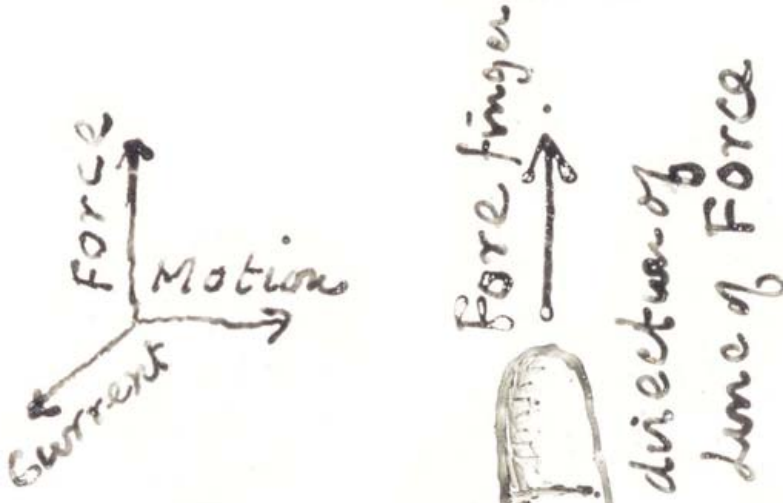 Force
Motion
Current
Fore finger
direction of
Line of Force